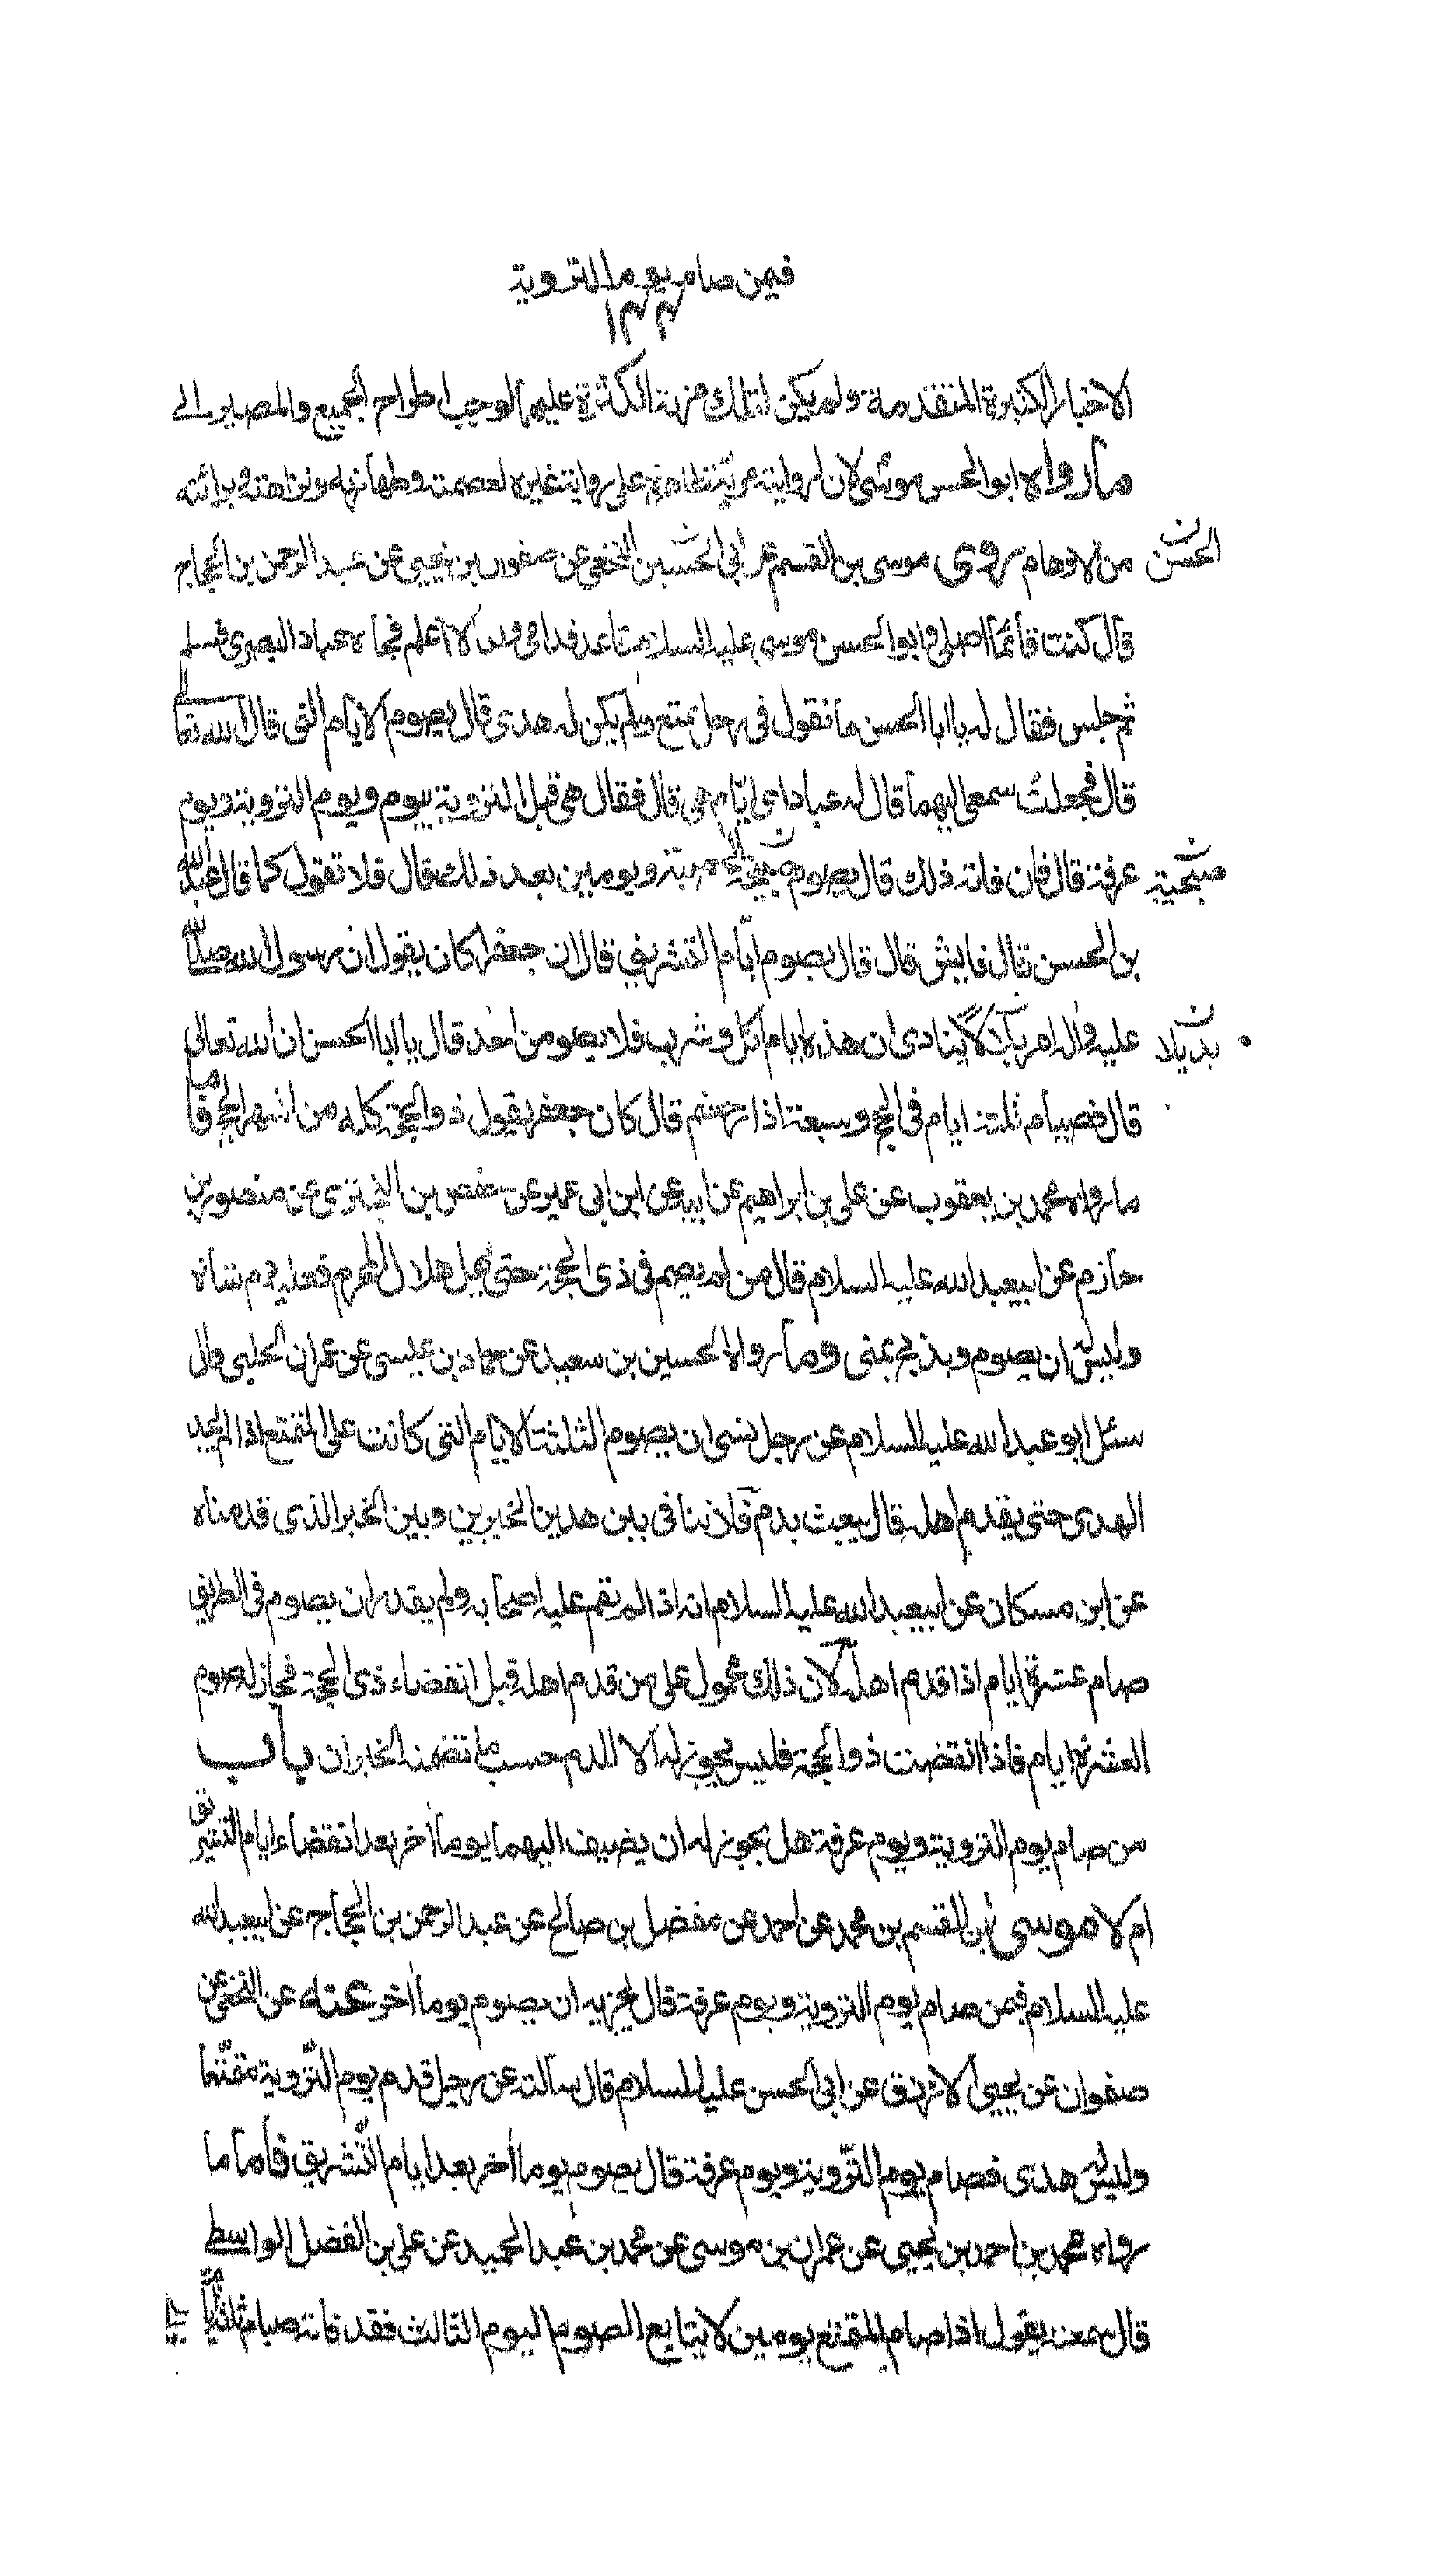 فيمن صام يوم التروية
١٣٣
الاخبار الكثيرة المتقدمة ولم يكن لتلك مزية الكثرة عليها لوجب اطراح الجميع والمصير الى
ما رواه ابو الحسن موسى لان لروايته مزية ظاهرة على رواية غيره لعصمته وطهارته ونزاهته وبرائته
من الاوهام روى موسى بن القسم عن ابى الحسين النخعى عن صفوان بن يحيى عن عبد الرحمن بن الحجاج
الحسن ن
قال كنت قائما اصلى وابو الحسن موسى عليه السلام قاعد قدامى وانا لا اعلم فجاءه عباد البصرى فسلم
ثم جلس فقال له يا ابا الحسن ما تقول فى رجل تمتع ولم يكن له هدى قال يصوم الايام التى قال الله تعالى
قال فجعلت سمعى اليهما قال له عباد اى ايّام هى قال فقال هى قبل التروية بيوم ويوم التروية ويوم
عرفة قال فان فاته ذلك قال يصوم صبيحة الحصبة ويومين بعد ذلك قال فلا تقول كما قال عبد الله
صبحية ن
بن الحسن قال فايش قال قال يصوم ايّام التشريق قال ان جعفرا كان يقول ان رسول الله صلى الله
عليه واله امر بلالا ينادى ان هذه ايام اكل وشرب فلا يصومن احد قال يا ابا الحسن ان الله تعالى
بديلا ن
قال فصيام ثلثة ايام فى الحج وسبعة اذا رجعتم قال كان جعفر يقول ذو الحجة كله من اشهر الحج فاما
ما رواه محمد بن يعقوب عن على بن ابراهيم عن ابيه عن ابن ابى عمير عن حفص بن البخترى عن منصور بن
حازم عن ابيعبد الله عليه السلام قال من لم يصم فى ذى الحجة حتى يهل هلال المحرم فعليه دم شاة
وليس له ان يصوم ويذبح بمنى وما رواه الحسين بن سعيد عن حماد بن عيسى عن عمران الحلبى قال
سئل ابو عبد الله عليه السلام عن رجل نسى ان يصوم الثلثة الايام التى كانت على المتمتع اذا لم يجد
الهدى حتى يقدم اهله قال يبعث بدم فلا تنافى بين هذين الخبرين وبين الخبر الذى قدمناه
عن ابن مسكان عن ابيعبد الله عليه السلام انه اذا لم يقم عليه اصحابه ولم يقدر ان يصوم فى الطريق
صام عشرة ايام اذا قدم اهله لان ذلك محمول على من قدم اهله قبل انقضاء ذى الحجة فجاز له صوم
العشرة ايام فاذا انقضت ذو الحجة فليس يجوز له الا الدم حسب ما تضمنه الخبران باب
من صام يوم التروية ويوم عرفة هل يجوز له ان يضيف اليهما يوما اخر بعد انقضاء ايام التشريق
ام لا موسى بن القسم بن محمد عن احمد عن مفضل بن صالح عن عبد الرحمن بن الحجاج عن ابيعبد الله
عليه السلام فيمن صام يوم التروية ويوم عرفة قال يجزيه ان يصوم يوما اخر عنه عن النخعى عن
صفوان عن يحيى الازرق عن ابى الحسن عليه السلام قال سالته عن رجل قدم يوم التّروية متمتّعا
وليس له هدى فصام يوم التّروية ويوم عرفة قال يصوم يوما اخر بعد ايام التّشريق فاما ما
رواه محمد بن احمد بن يحيى عن عمران بن موسى عن محمد بن عبد الحميد عن على بن الفضل الواسطى
قال سمعته يقول اذا صام المتمتع يومين لا يتابع الصوم اليوم الثالث فقد فاته صيام ثلثة ايام